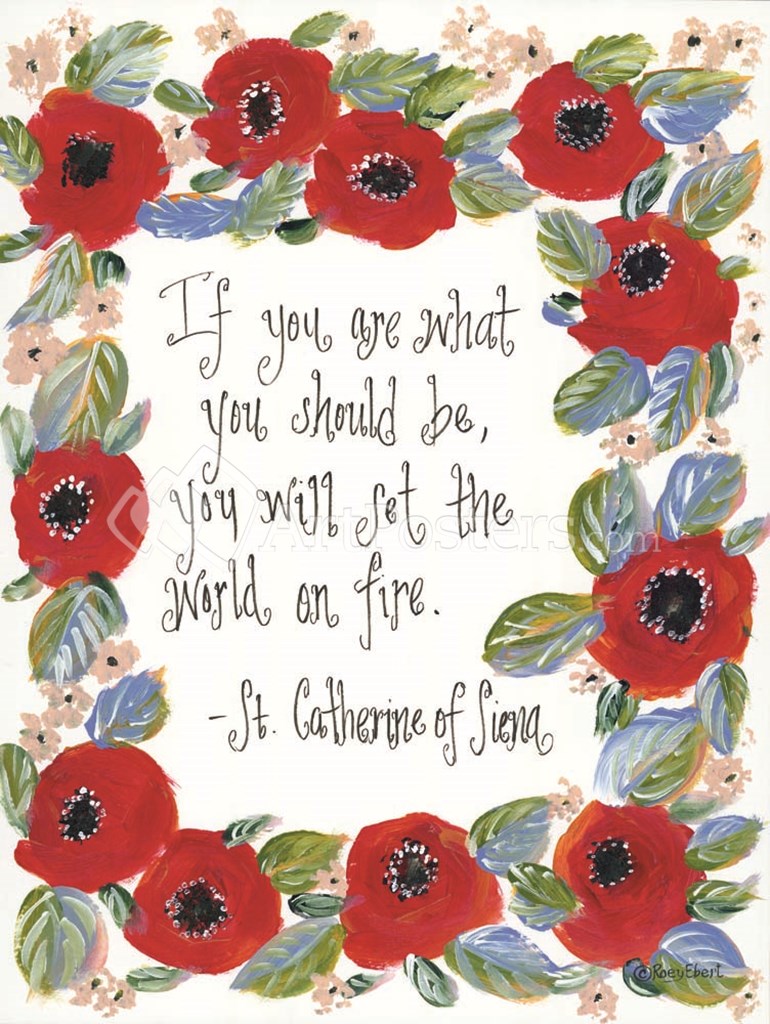 If you are what
you should be,
you will set the
world on fire.
-St. Catherine of Siena
ArtPosters.com
©RoeyEbert